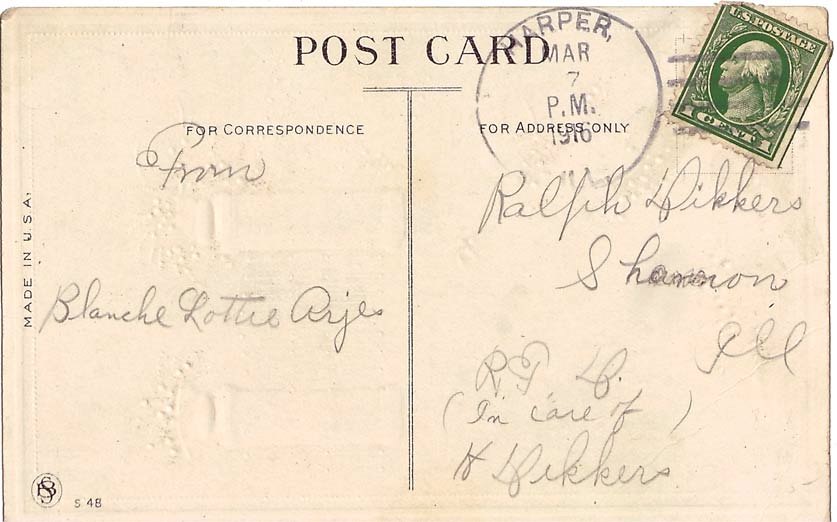 POST CARD
HARPER,
MAR
7
P.M.
1916
U.S. POSTAGE
1 CENT 1
FOR CORRESPONDENCE
FOR ADDRESS ONLY
From
Blanche Lottie Arjes
Ralph Dikkers
Shannon
Ill
R.F.D.
(In care of)
H Dikkers
MADE IN U.S.A.
S 48